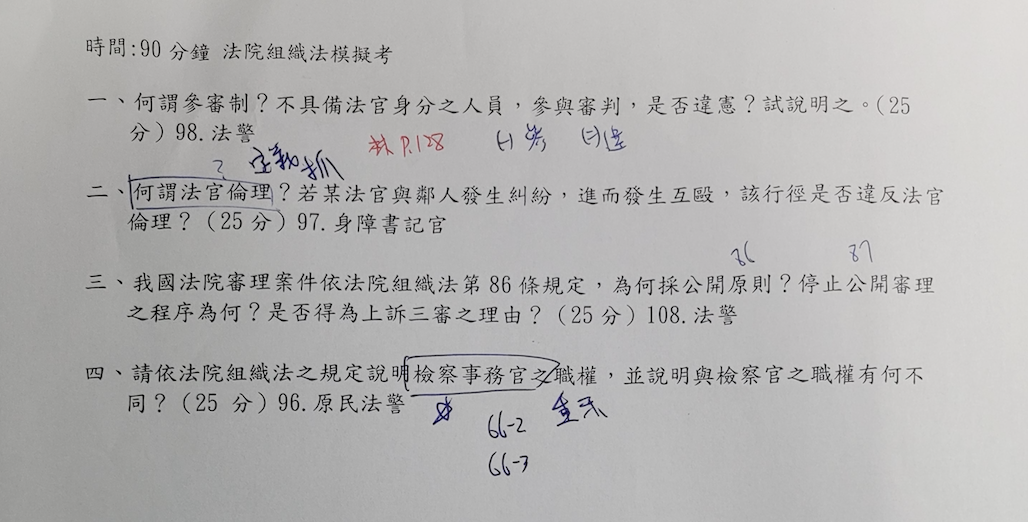 時間:90分鐘 法院組織法模擬考
一、何謂參審制?不具備法官身分之人員,參與審判,是否違憲?試說明之。(25
分)98.法警
P.128
二、何謂法官倫理?若某法官與鄰人發生糾紛,進而發生互毆,該行徑是否違反法官
倫理?(25分)97.身障書記官
86 87
三、我國法院審理案件依法院組織法第86條規定,為何採公開原則?停止公開審理
之程序為何?是否得為上訴三審之理由?(25分)108.法警
四、請依法院組織法之規定說明檢察事務官之職權,並說明與檢察官之職權有何不
同?(25 分)96.原民法警
66-2
66-3